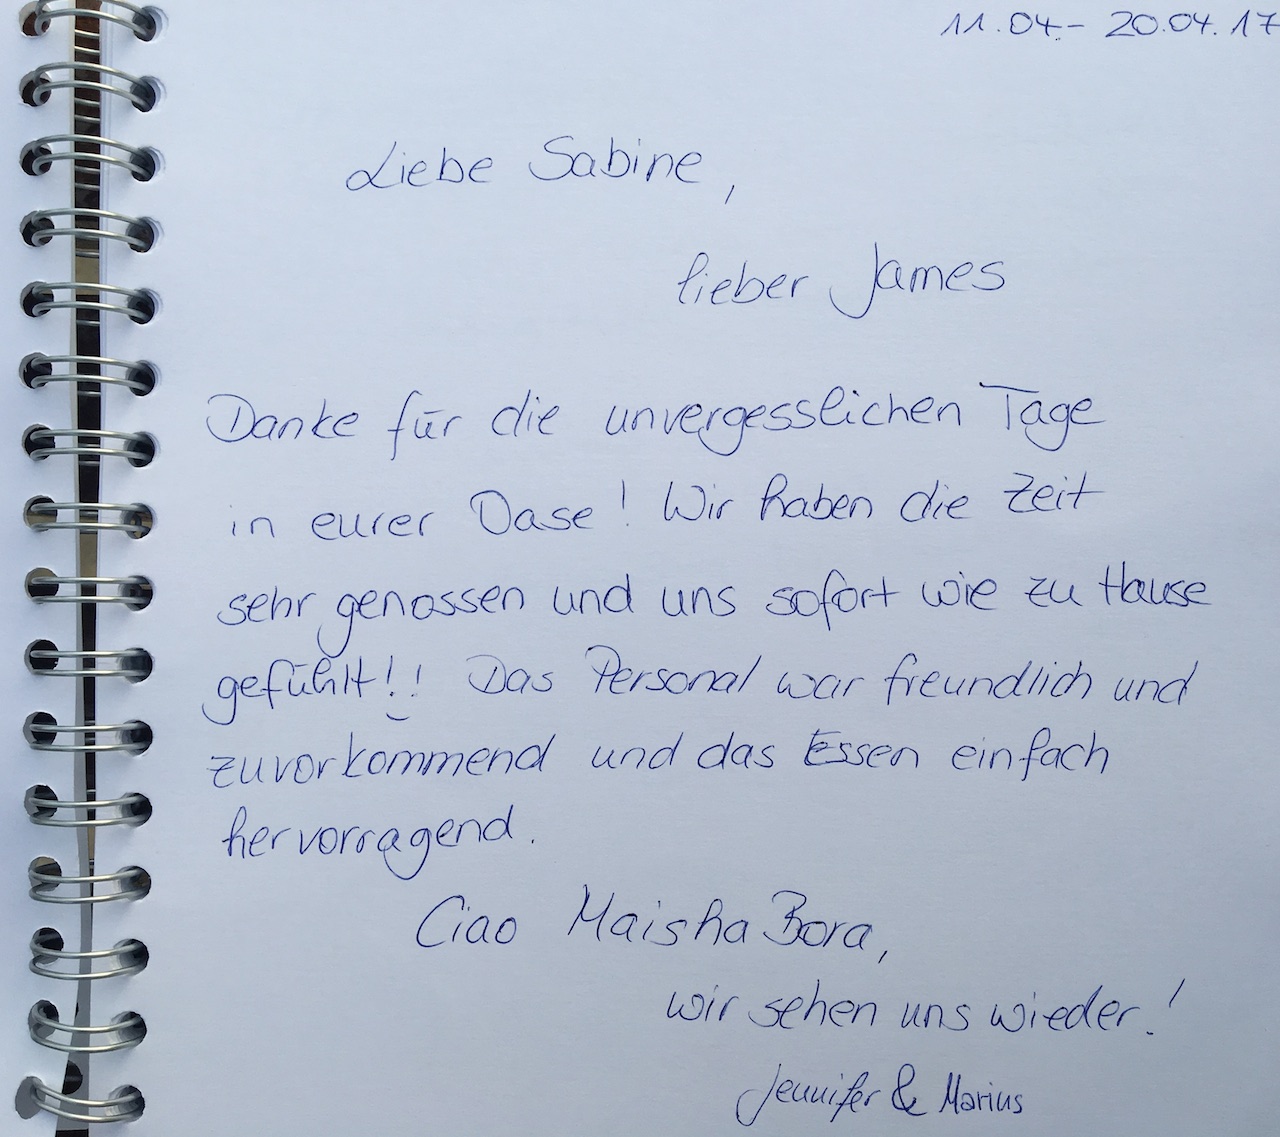 11.04.- 20.04.17
Liebe Sabine,
lieber James
Danke für die unvergesslichen Tage
in eurer Oase! Wir haben die Zeit
sehr genossen und uns sofort wie zu Hause
gefühlt!! Das Personal war freundlich und
zuvorkommend und das Essen einfach
hervorragend.
Ciao Maisha Bora,
wir sehen uns wieder!
Jennifer & Marius